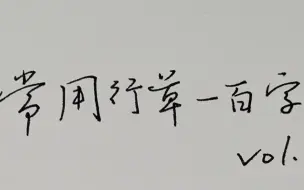 常用行草一百字
vol.